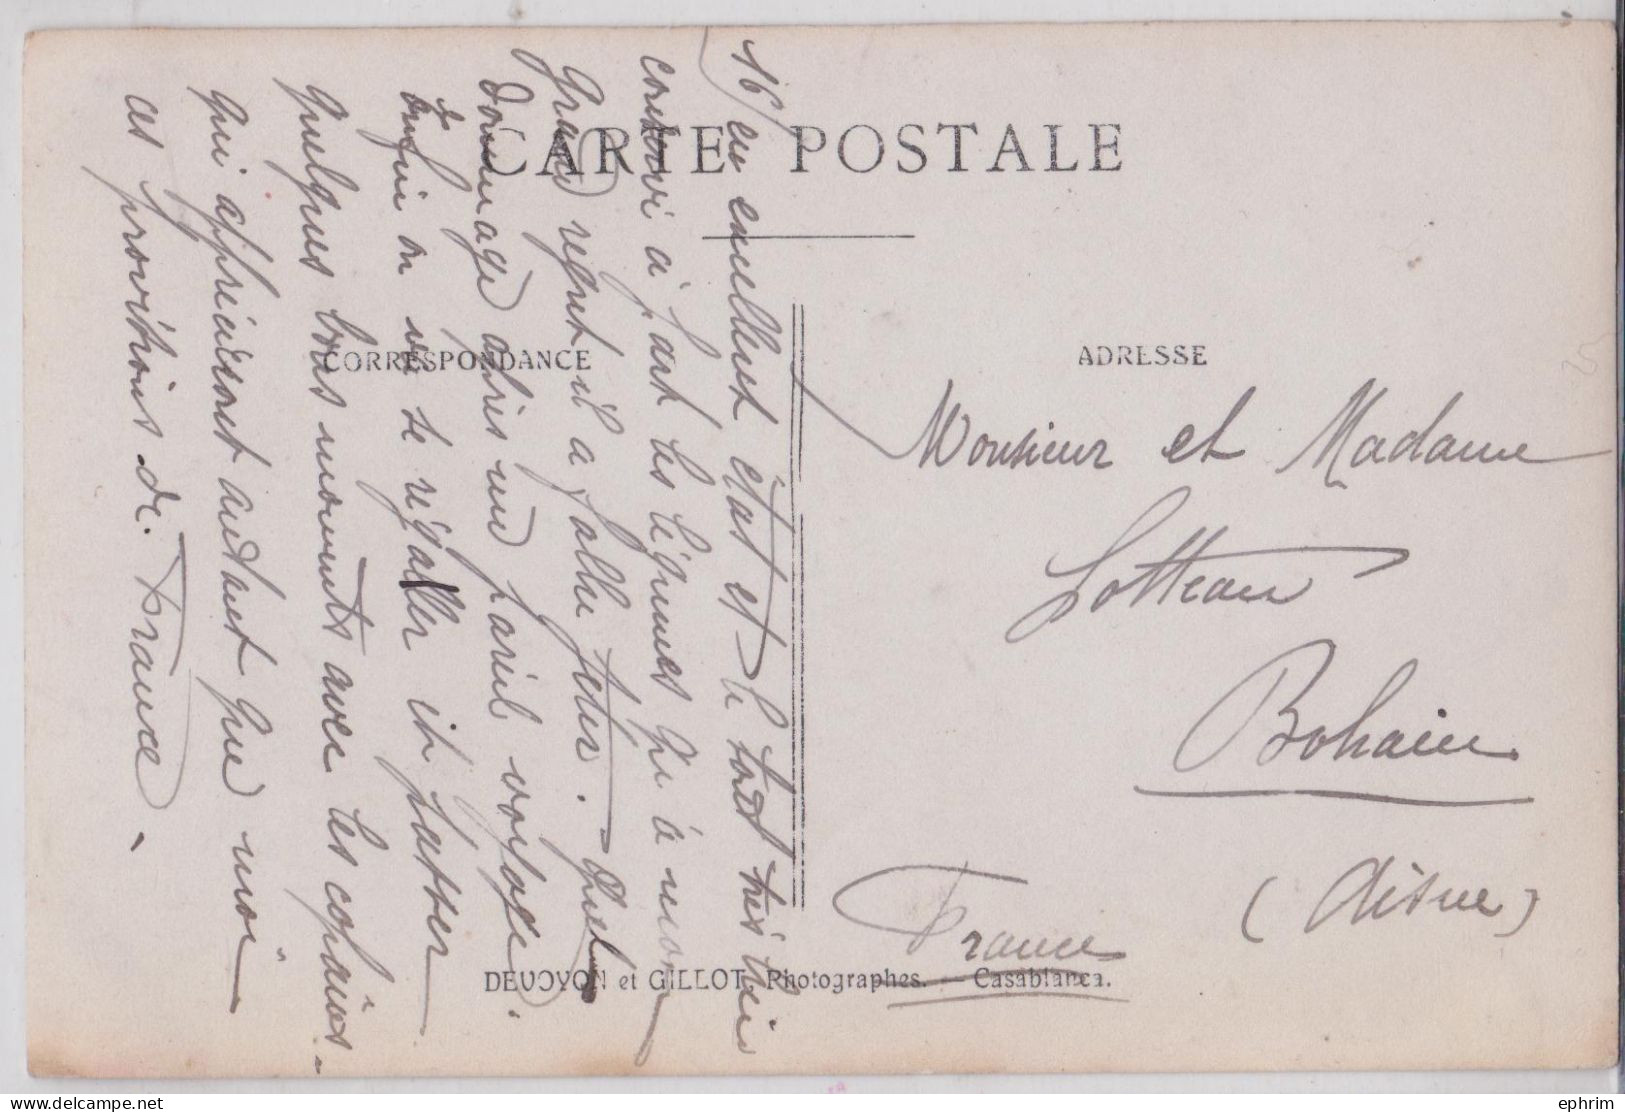 CARTE POSTALE
CORRESPONDANCE
ADRESSE
16/ en excellent état et le tout très bien
conservé à part les légumes qui à mon
grand regret il a fallu jeter. Quel
dommage après un pareil voyage.
Enfin on va se régaler et passer
quelques bons moments avec les copains
qui apprécieront autant que moi
ces provisions de France.
Monsieur et Madame
Lotteau
Bohain
(Aisne)
France
DEVOYON et GILLOT, Photographes. — Casablanca.
ephrim